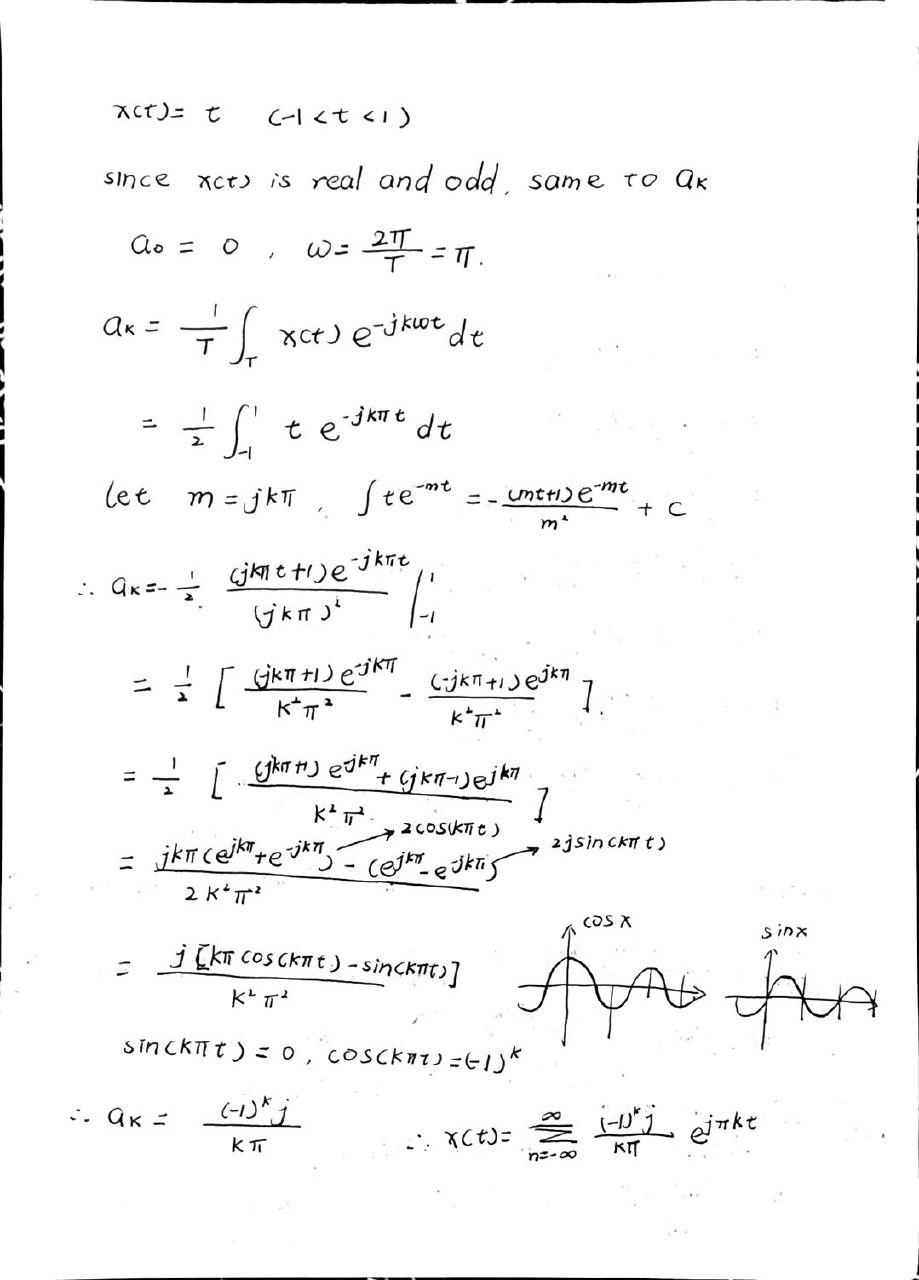 x(t) = t (-1 < t < 1)
since x(t) is real and odd, same to aₖ
a₀ = 0 , ω = 2π/T = π.
aₖ = 1/T ∫_T x(t) e^{-jkωt} dt
= 1/2 ∫_{-1}^{1} t e^{-jkπt} dt
let m = jkπ , ∫ te^{-mt} = - (mt+1)e^{-mt}/m² + C
∴ aₖ = - 1/2 (jkπt+1)e^{-jkπt}/(jkπ)² |_{-1}^{1}
= 1/2 [ (jkπ+1)e^{-jkπ}/k²π² - (-jkπ+1)e^{jkπ}/k²π² ].
= 1/2 [ ((jkπ+1) e^{-jkπ} + (jkπ-1)e^{jkπ})/k²π² ]
→ 2cos(kπt) → 2jsin(kπt)
= (jkπ(e^{jkπ}+e^{-jkπ}) - (e^{jkπ}-e^{-jkπ}))/2k²π²
cos x sinx
= j[kπ cos(kπt) - sin(kπt)]/k²π²
sin(kπt) = 0 , cos(kπt) = (-1)^k
∴ aₖ = (-1)^k j/kπ ∴ x(t) = ∑_{n=-∞}^{∞} (-1)^k j/kπ e^{jπkt}